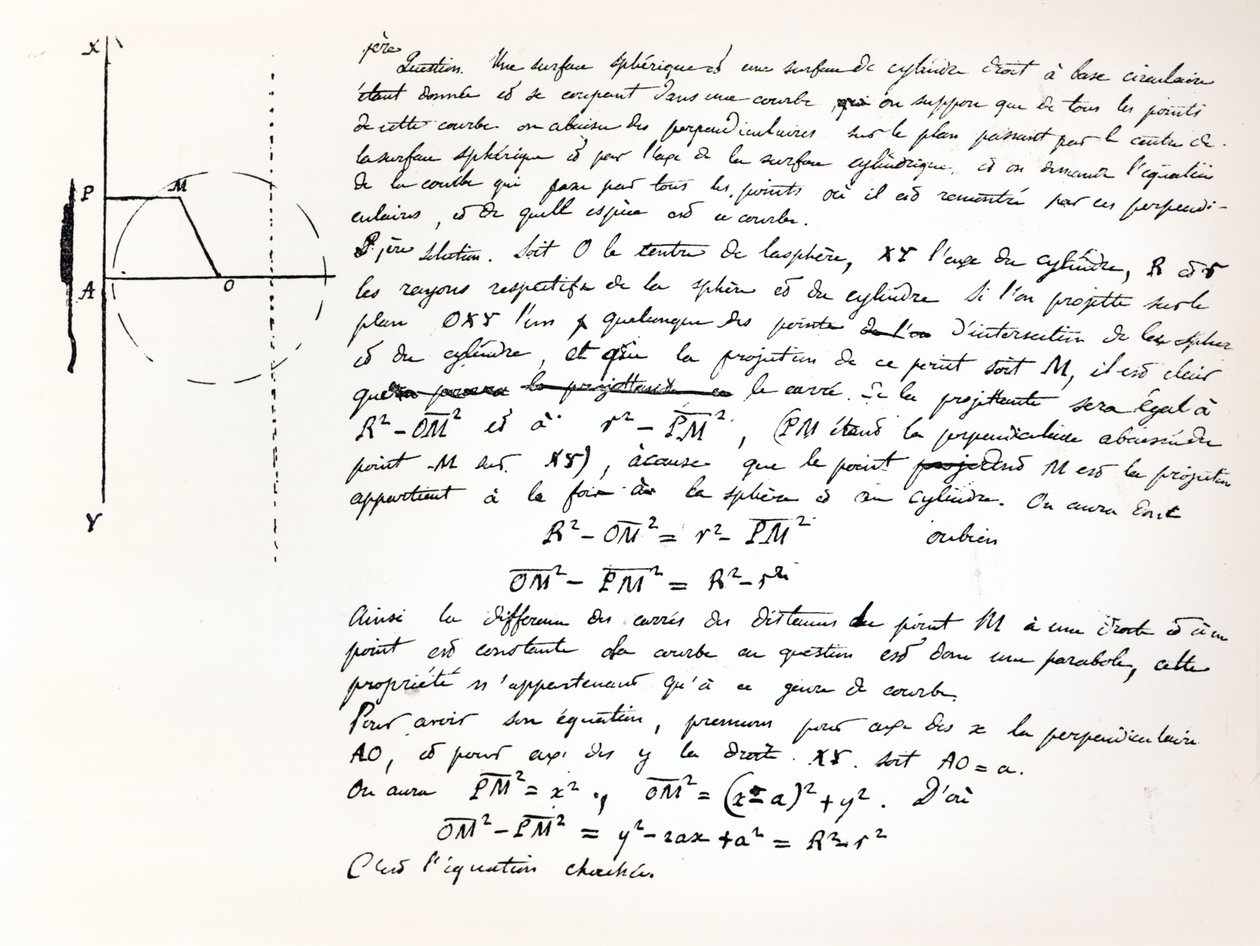 X
P
M
A
O
Y
1ère
Question. Une surface sphérique et une surface de cylindre droit à base circulaire
étant donnée et se coupant dans une courbe, on suppose que de tous les points
de cette courbe on abaisse des perpendiculaires sur le plan passant par le centre de
la surface sphérique et par l'axe de la surface cylindrique, et on demande l'équation
de la courbe qui passe par tous les points où il est rencontré par ces perpendi-
culaires, et de quelle espèce est ce courbe.
1ère solution. Soit O le centre de la sphère, XY l'axe du cylindre, R et r
les rayons respectifs de la sphère et du cylindre si l'on projette sur le
plan OXY l'un quelconque des points d'intersection de la sphère
et du cylindre, et que la projection de ce point soit M, il est clair
que le carré de la projettante sera égal à
R² - OM² et à r² - PM², (PM étant la perpendiculaire abaissée du
point M sur XY), à cause que le point dont M est la projection
appartient à la fois à la sphère et au cylindre. On aura donc
R² - OM² = r² - PM² ou bien
OM² - PM² = R² - r²
Ainsi la différence des carrés des distances du point M à une droite et à un
point est constante la courbe en question est donc une parabole, cette
propriété n'appartenant qu'à ce genre de courbe.
Pour avoir son équation, prenons pour axe des x la perpendiculaire
AO, et pour axe des y la droite XY. soit AO = a.
On aura PM² = x², OM² = (x - a)² + y². D'où
OM² - PM² = y² - 2ax + a² = R² - r²
C'est l'équation cherchée.